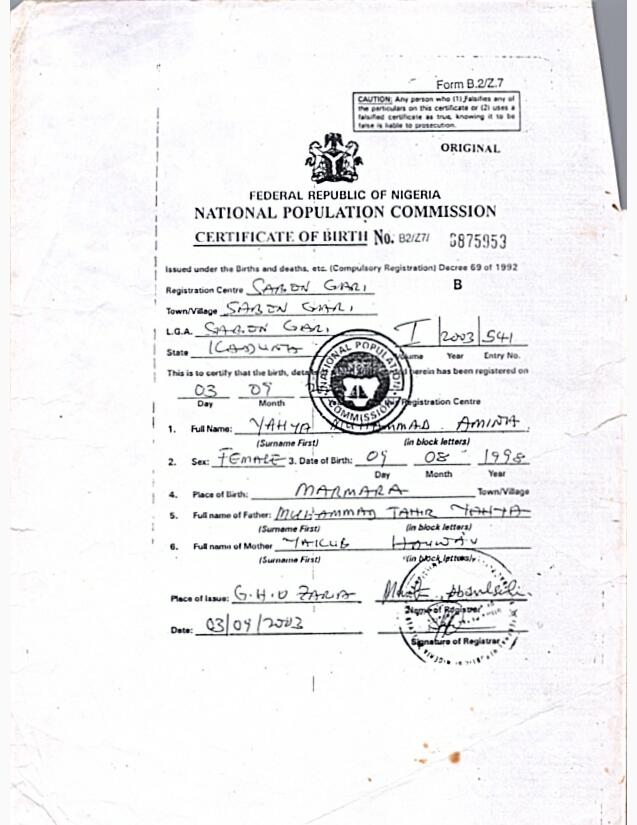 Form B.2/Z.7
CAUTION: Any person who (1) Falsifies any of
the particulars on this certificate or (2) uses a
falsified certificate as true, knowing it to be
false is liable to prosecution.
ORIGINAL
FEDERAL REPUBLIC OF NIGERIA
NATIONAL POPULATION COMMISSION
CERTIFICATE OF BIRTH No. B2/Z7/ 6875953
Issued under the Births and deaths, etc. (Compulsory Registration) Decree 69 of 1992
Registration Centre SABON GARI B
Town/Village SABON GARI
L.G.A. SABON GARI I 2003 541
State KADUNA Volume Year Entry No.
NATIONAL POPULATION COMMISSION
This is to certify that the birth, herein has been registered on
03 09
Day Month Registration Centre
1. Full Name: YAHYA MUHAMMAD AMINA
(Surname First) (in block letters)
2. Sex: FEMALE 3. Date of Birth: 09 08 1998
Day Month Year
4. Place of Birth: MARMARA Town/Village
5. Full name of Father: MUHAMMAD TAHIR YAHYA
(Surname First) (in block letters)
6. Full name of Mother YAKUB
(Surname First) (in block letters)
Place of Issue: G.H.U ZARIA
Name of Registrar
Date: 03/09/2003
Signature of Registrar